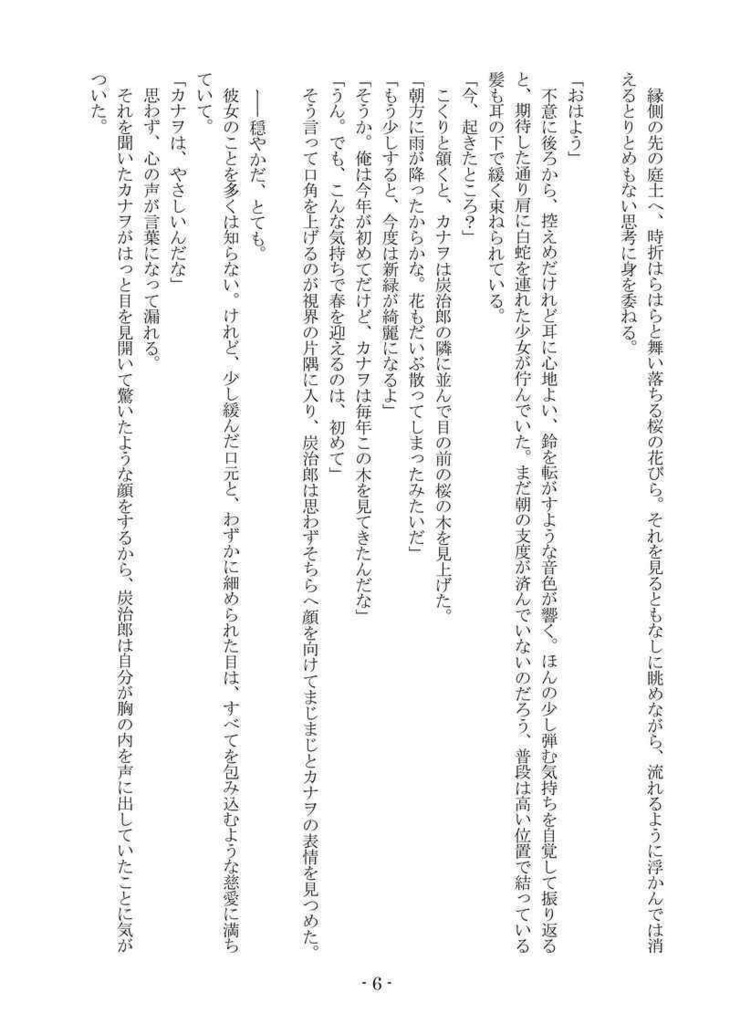 縁側の先の庭土へ、時折はらはらと舞い落ちる桜の花びら。それを見るともなしに眺めながら、流れるように浮かんでは消
えるとりとめもない思考に身を委ねる。
「おはよう」
不意に後ろから、控えめだけれど耳に心地よい、鈴を転がすような音色が響く。ほんの少し弾む気持ちを自覚して振り返る
と、期待した通り肩に白蛇を連れた少女が佇んでいた。まだ朝の支度が済んでいないのだろう、普段は高い位置で結っている
髪も耳の下で緩く束ねられている。
「今、起きたところ?」
こくりと頷くと、カナヲは炭治郎の隣に並んで目の前の桜の木を見上げた。
「朝方に雨が降ったからかな。花もだいぶ散ってしまったみたいだ」
「もう少しすると、今度は新緑が綺麗になるよ」
「そうか。俺は今年が初めてだけど、カナヲは毎年この木を見てきたんだな」
「うん。でも、こんな気持ちで春を迎えるのは、初めて」
そう言って口角を上げるのが視界の片隅に入り、炭治郎は思わずそちらへ顔を向けてまじまじとカナヲの表情を見つめた。
――穏やかだ、とても。
彼女のことを多くは知らない。けれど、少し緩んだ口元と、わずかに細められた目は、すべてを包み込むような慈愛に満ち
ていて。
「カナヲは、やさしいんだな」
思わず、心の声が言葉になって漏れる。
それを聞いたカナヲがはっと目を見開いて驚いたような顔をするから、炭治郎は自分が胸の内を声に出していたことに気が
ついた。
- 6 -